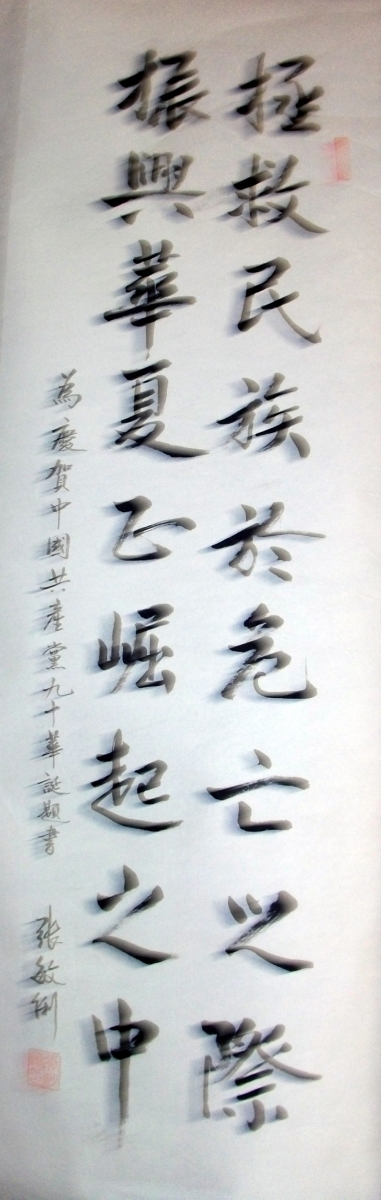 拯救民族於危亡之際
振興華夏正崛起之中
為慶賀中國共產黨九十華誕題書
張敏俐